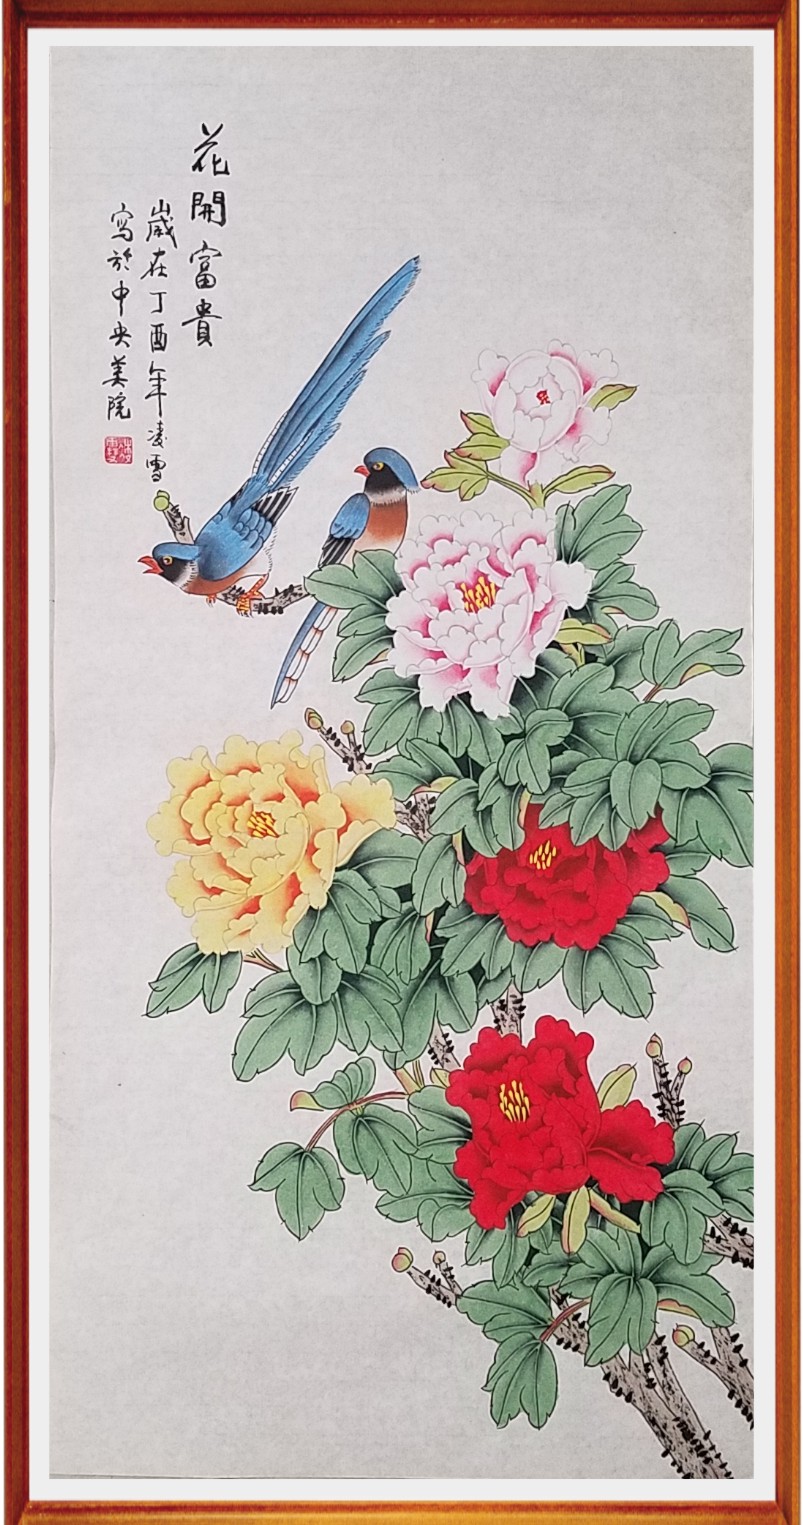 花開富貴
歲在丁酉年凌雪
寫於中央美院